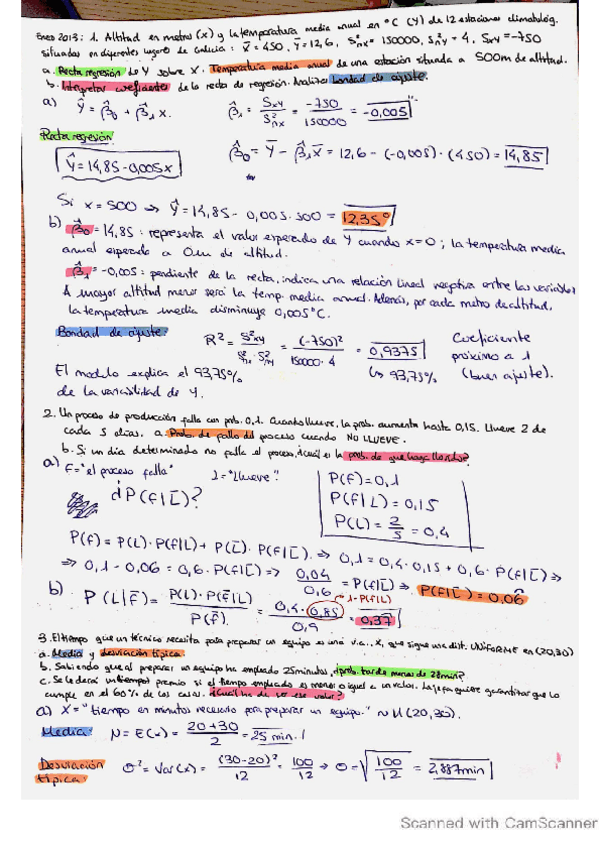 Enero 2013: 1. Altitud en metros (x) y la temperatura media anual en °C (Y) de 12 estaciones climatológ.
situadas en diferentes lugares de Galicia: x̄ = 450, ȳ = 12,6, S²ₙx = 150000, S²ₙy = 4, Sxy = -750
a. Recta regresión de Y sobre X. Temperatura media anual de una estación situada a 500m de altitud.
b. Interpretar coeficientes de la recta de regresión. Analizar bondad de ajuste.
a) Ŷ = β̂₀ + β̂₁ x. β̂₁ = Sxy / S²ₙx = -750 / 150000 = -0,005
Recta regresión
β̂₀ = Ȳ - β̂₁ x̄ = 12,6 - (-0,005) · (450) = 14,85
Ŷ = 14,85 - 0,005x
Si x = 500 ⇒ Ŷ = 14,85 - 0,005 · 500 = 12,35°
b) β̂₀ = 14,85 : representa el valor esperado de Y cuando x=0 ; la temperatura media
anual esperada a 0m de altitud.
β̂₁ = -0,005 : pendiente de la recta, indica una relación lineal negativa entre las variables
A mayor altitud menor será la temp. media anual. Además, por cada metro de altitud,
la temperatura media disminuye 0,005°C.
Bondad de ajuste: R² = S²xy / S²ₙx · S²ₙy = (-750)² / 150000 · 4 = 0,9375 Coeficiente
próximo a 1
↳ 93,75% (buen ajuste).
El modelo explica el 93,75%
de la variabilidad de Y.
2. Un proceso de producción falla con prob. 0,1. Cuando llueve, la prob. aumenta hasta 0,15. Llueve 2 de
cada 5 días. a. Prob. de fallo del proceso cuando NO LLUEVE.
b. Si un día determinado no falla el proceso, ¿cuál es la prob. de que haya llovido?
a) F = "el proceso falla" L = "Llueve"
P(F) = 0,1
¿P(F|L̄)?
P(F|L) = 0,15
P(L) = 2/5 = 0,4
P(F) = P(L) · P(F|L) + P(L̄) · P(F|L̄) ⇒ 0,1 = 0,4 · 0,15 + 0,6 · P(F|L̄) ⇒
⇒ 0,1 - 0,06 = 0,6 · P(F|L̄) ⇒ 0,04 / 0,6 = P(F|L̄) ⇒ P(F|L̄) = 0,06̂
1 - P(F|L)
b) P(L|F̄) = P(L) · P(F̄|L) / P(F̄) = 0,4 · 0,85 / 0,9 = 0,37
3. El tiempo que un técnico necesita para preparar un equipo es una v.a., X, que sigue una dist. UNIFORME en (20,30)
a. Media y desviación típica.
b. Sabiendo que al preparar un equipo ha empleado 25minutos, ¿prob. tarde menos de 28min?
c. Se le dará un premio si el tiempo empleado es menor o igual a un valor. La quiere garantizar que lo
cumple en el 60% de los casos. ¿Cuál ha de ser ese valor?
a) X = "tiempo en minutos necesario para preparar un equipo." ~ U(20,30).
Media: μ = E(x) = 20+30 / 2 = 25 min.
Desviación
típica: σ² = Var(x) = (30-20)² / 12 = 100 / 12 → σ = √(100 / 12) = 2,887min
Scanned with CamScanner